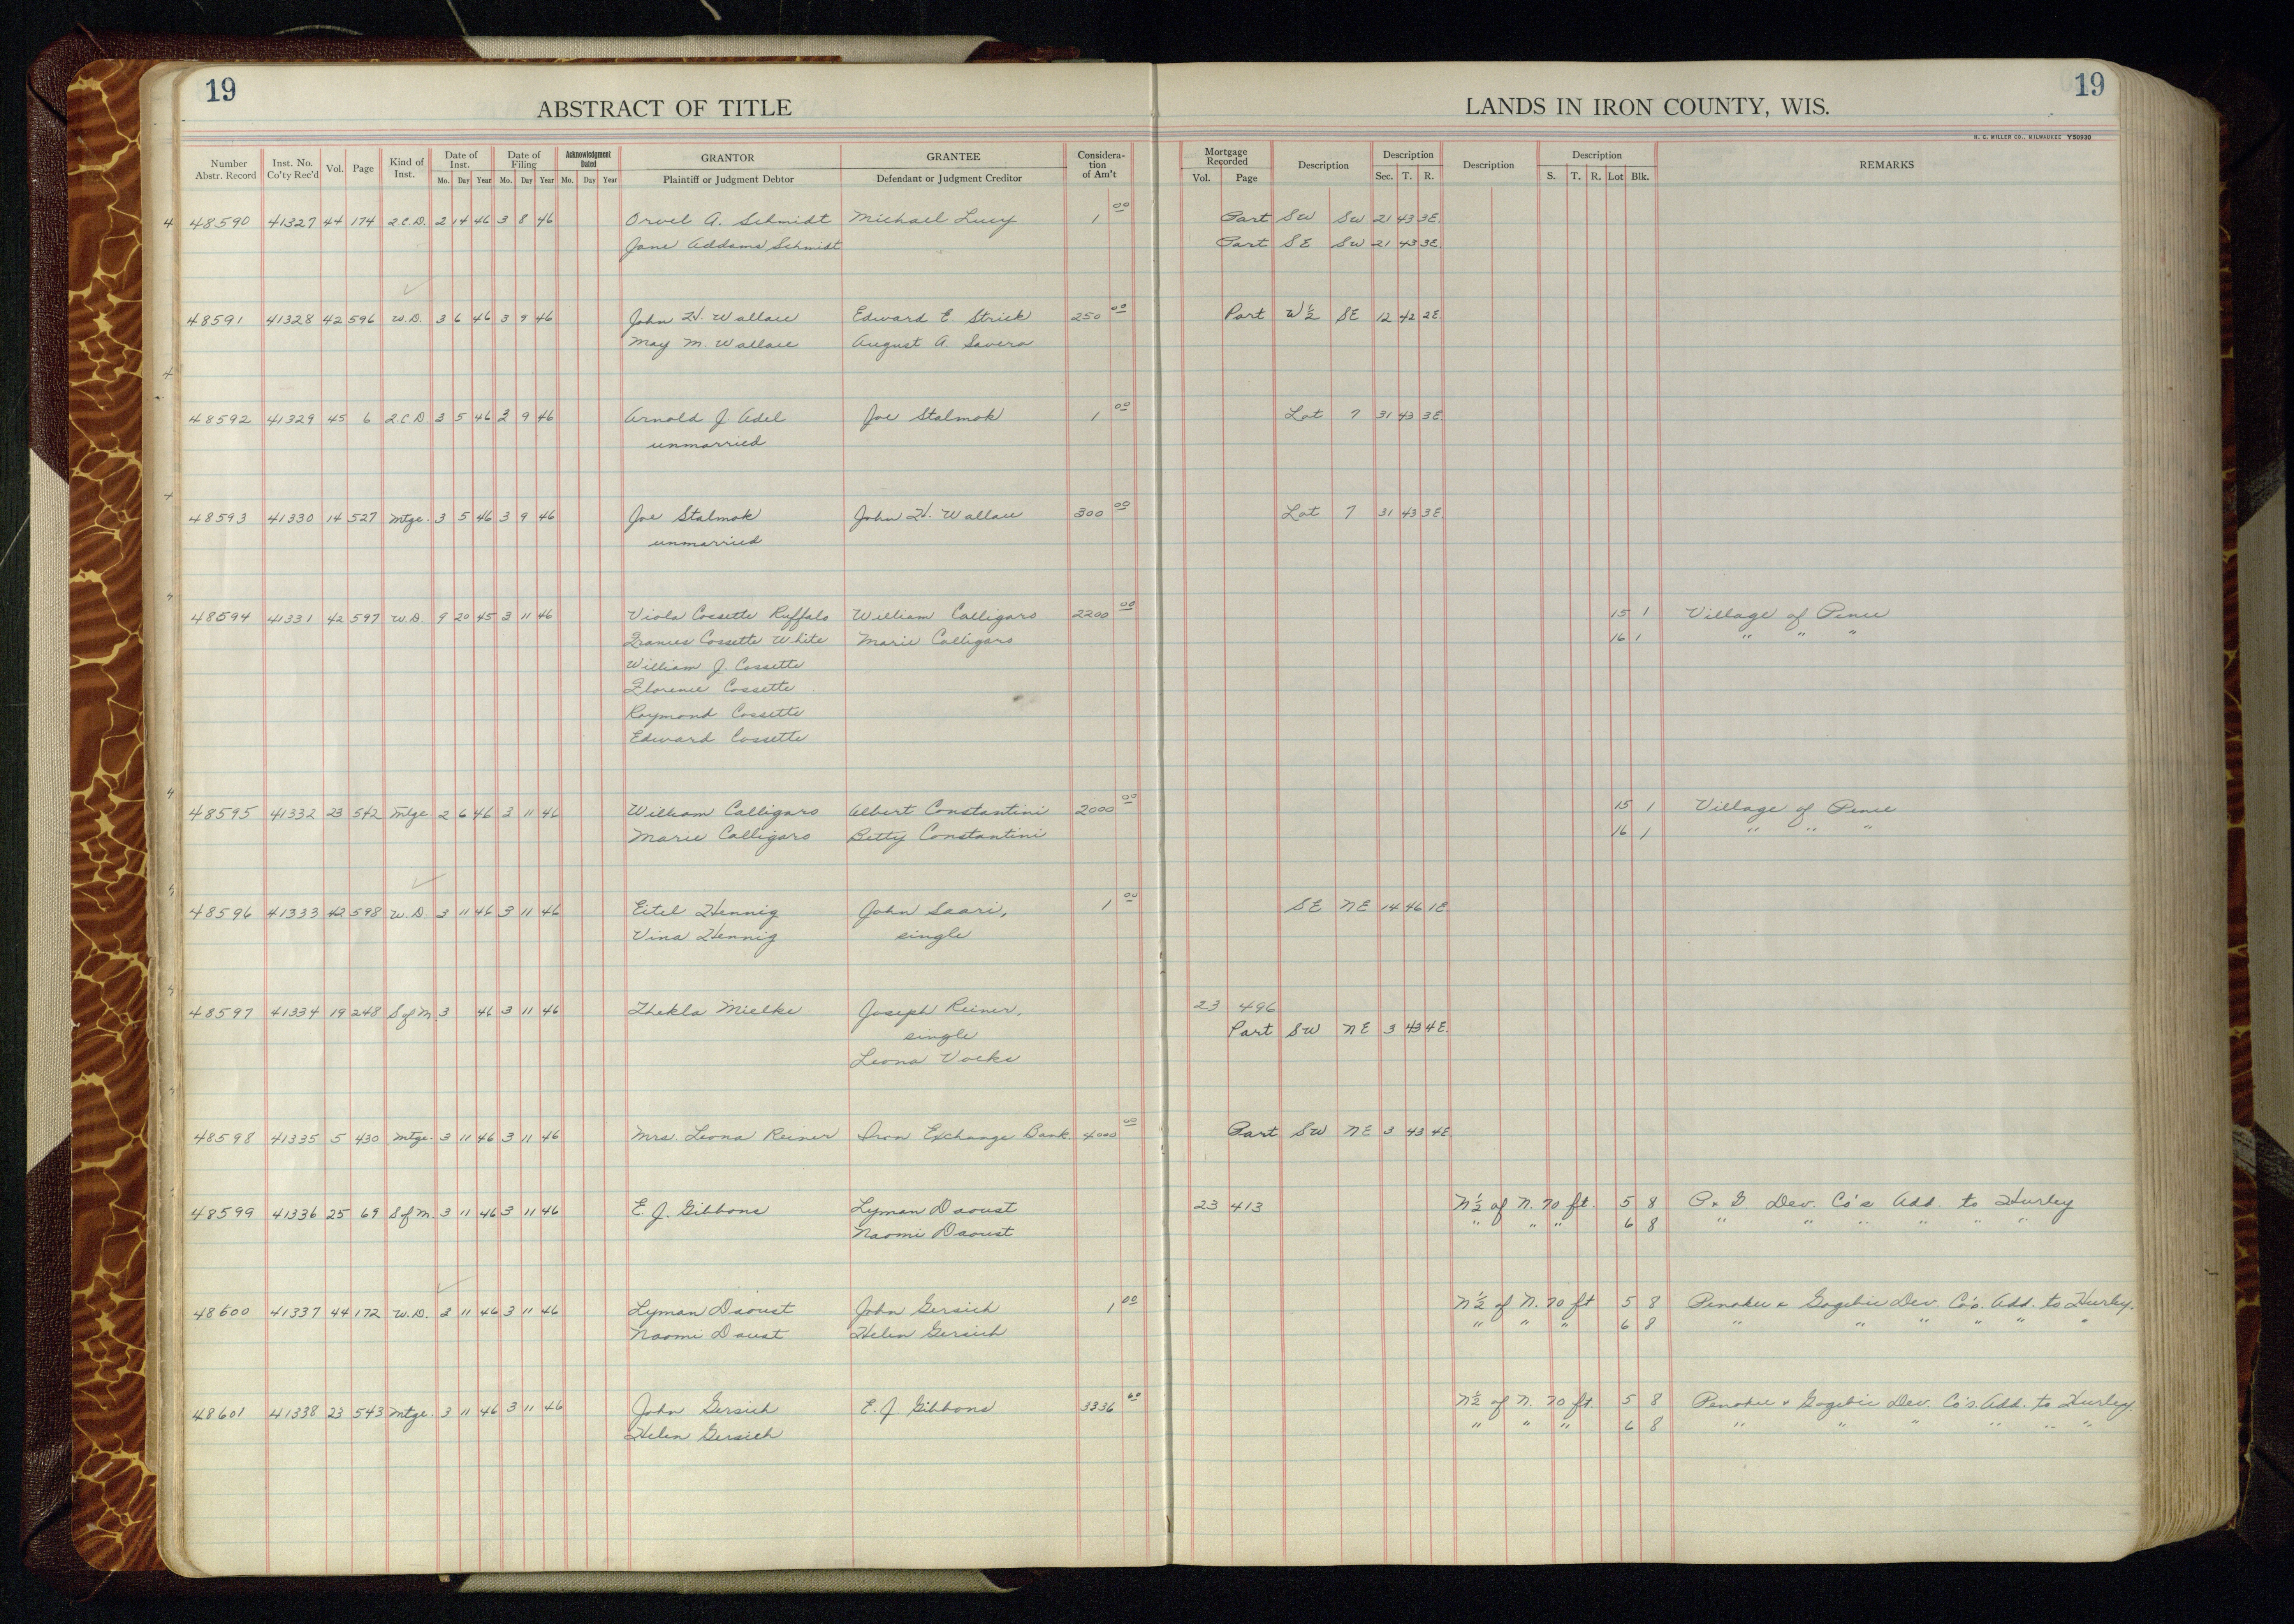 19 19
ABSTRACT OF TITLE LANDS IN IRON COUNTY, WIS.
H. C. MILLER CO., MILWAUKEE Y50930
Number Abstr. Record Inst. No. Co'ty Rec'd Vol. Page Kind of Inst. Date of Inst. Mo. Day Year Date of Filing Mo. Day Year Acknowledgment Dated Mo. Day Year GRANTOR Plaintiff or Judgment Debtor GRANTEE Defendant or Judgment Creditor Considera-tion of Am't Mortgage Recorded Vol. Page Description Description Sec. T. R. Description Description S. T. R. Lot Blk. REMARKS
48590 41327 44 174 2.C.D. 2 14 46 3 8 46 Orvel A. Schmidt Michael Lucy 1 00 Part SW SW 21 43 3E.
Jane Addams Schmidt Part SE SW 21 43 3E.
48591 41328 42 596 W.D. 3 6 46 3 9 46 John H. Wallace Edward E. Strick 250 00 Part W½ SE 12 42 2E.
May M. Wallace August A. Savera
48592 41329 45 6 2.C.D. 3 5 46 3 9 46 Arnold J Adel Joe Stalmok 1 00 Lot 7 31 43 3E.
unmarried
48593 41330 14 527 Mtge. 3 5 46 3 9 46 Joe Stalmok John H. Wallace 300 00 Lot 7 31 43 3E.
unmarried
48594 41331 42 597 W.D. 9 20 45 3 11 46 Viola Cossette Ruffalo William Calligaro 2200 00 15 1 Village of Pence
Frances Cossette White Marie Calligaro 16 1 " " "
William J. Cossette
Florence Cossette
Raymond Cossette
Edward Cossette
48595 41332 23 542 Mtge 2 6 46 3 11 46 William Calligaro Albert Constantini 2000 00 15 1 Village of Pence
Marie Calligaro Betty Constantini 16 1 " " "
48596 41333 42 598 W.D. 3 11 46 3 11 46 Eitel Hennig John Saari, 1 00 SE NE 14 46 1E
Vina Hennig single
48597 41334 19 248 S of M. 3 46 3 11 46 Thekla Mielke Joseph Reiner, 23 496
single Part SW NE 3 43 4E.
Leona Voeke
48598 41335 5 430 Mtge. 3 11 46 3 11 46 Mrs. Leona Reiner Iron Exchange Bank 4000 00 Part SW NE 3 43 4E
48599 41336 25 69 S of M. 3 11 46 3 11 46 E. J. Gibbons Lyman Daoust 23 413 N½ of N. 70 ft. 5 8 P & G Dev. Co's Add. to Hurley
Naomi Daoust " " " 6 8 " " " " " "
48600 41337 44 172 W.D. 3 11 46 3 11 46 Lyman Daoust John Gersich 1 00 N½ of N. 70 ft 5 8 Penokee & Gogebic Dev. Co's. Add. to Hurley.
Naomi Daust Helen Gersich " " " 6 8 " " " " " "
48601 41338 23 543 Mtge. 3 11 46 3 11 46 John Gersich E. J Gibbons 3336 60 N½ of N. 70 ft. 5 8 Penokee & Gogebic Dev. Co's. Add. to Hurley.
Helen Gersich " " " 6 8 " " " " " "